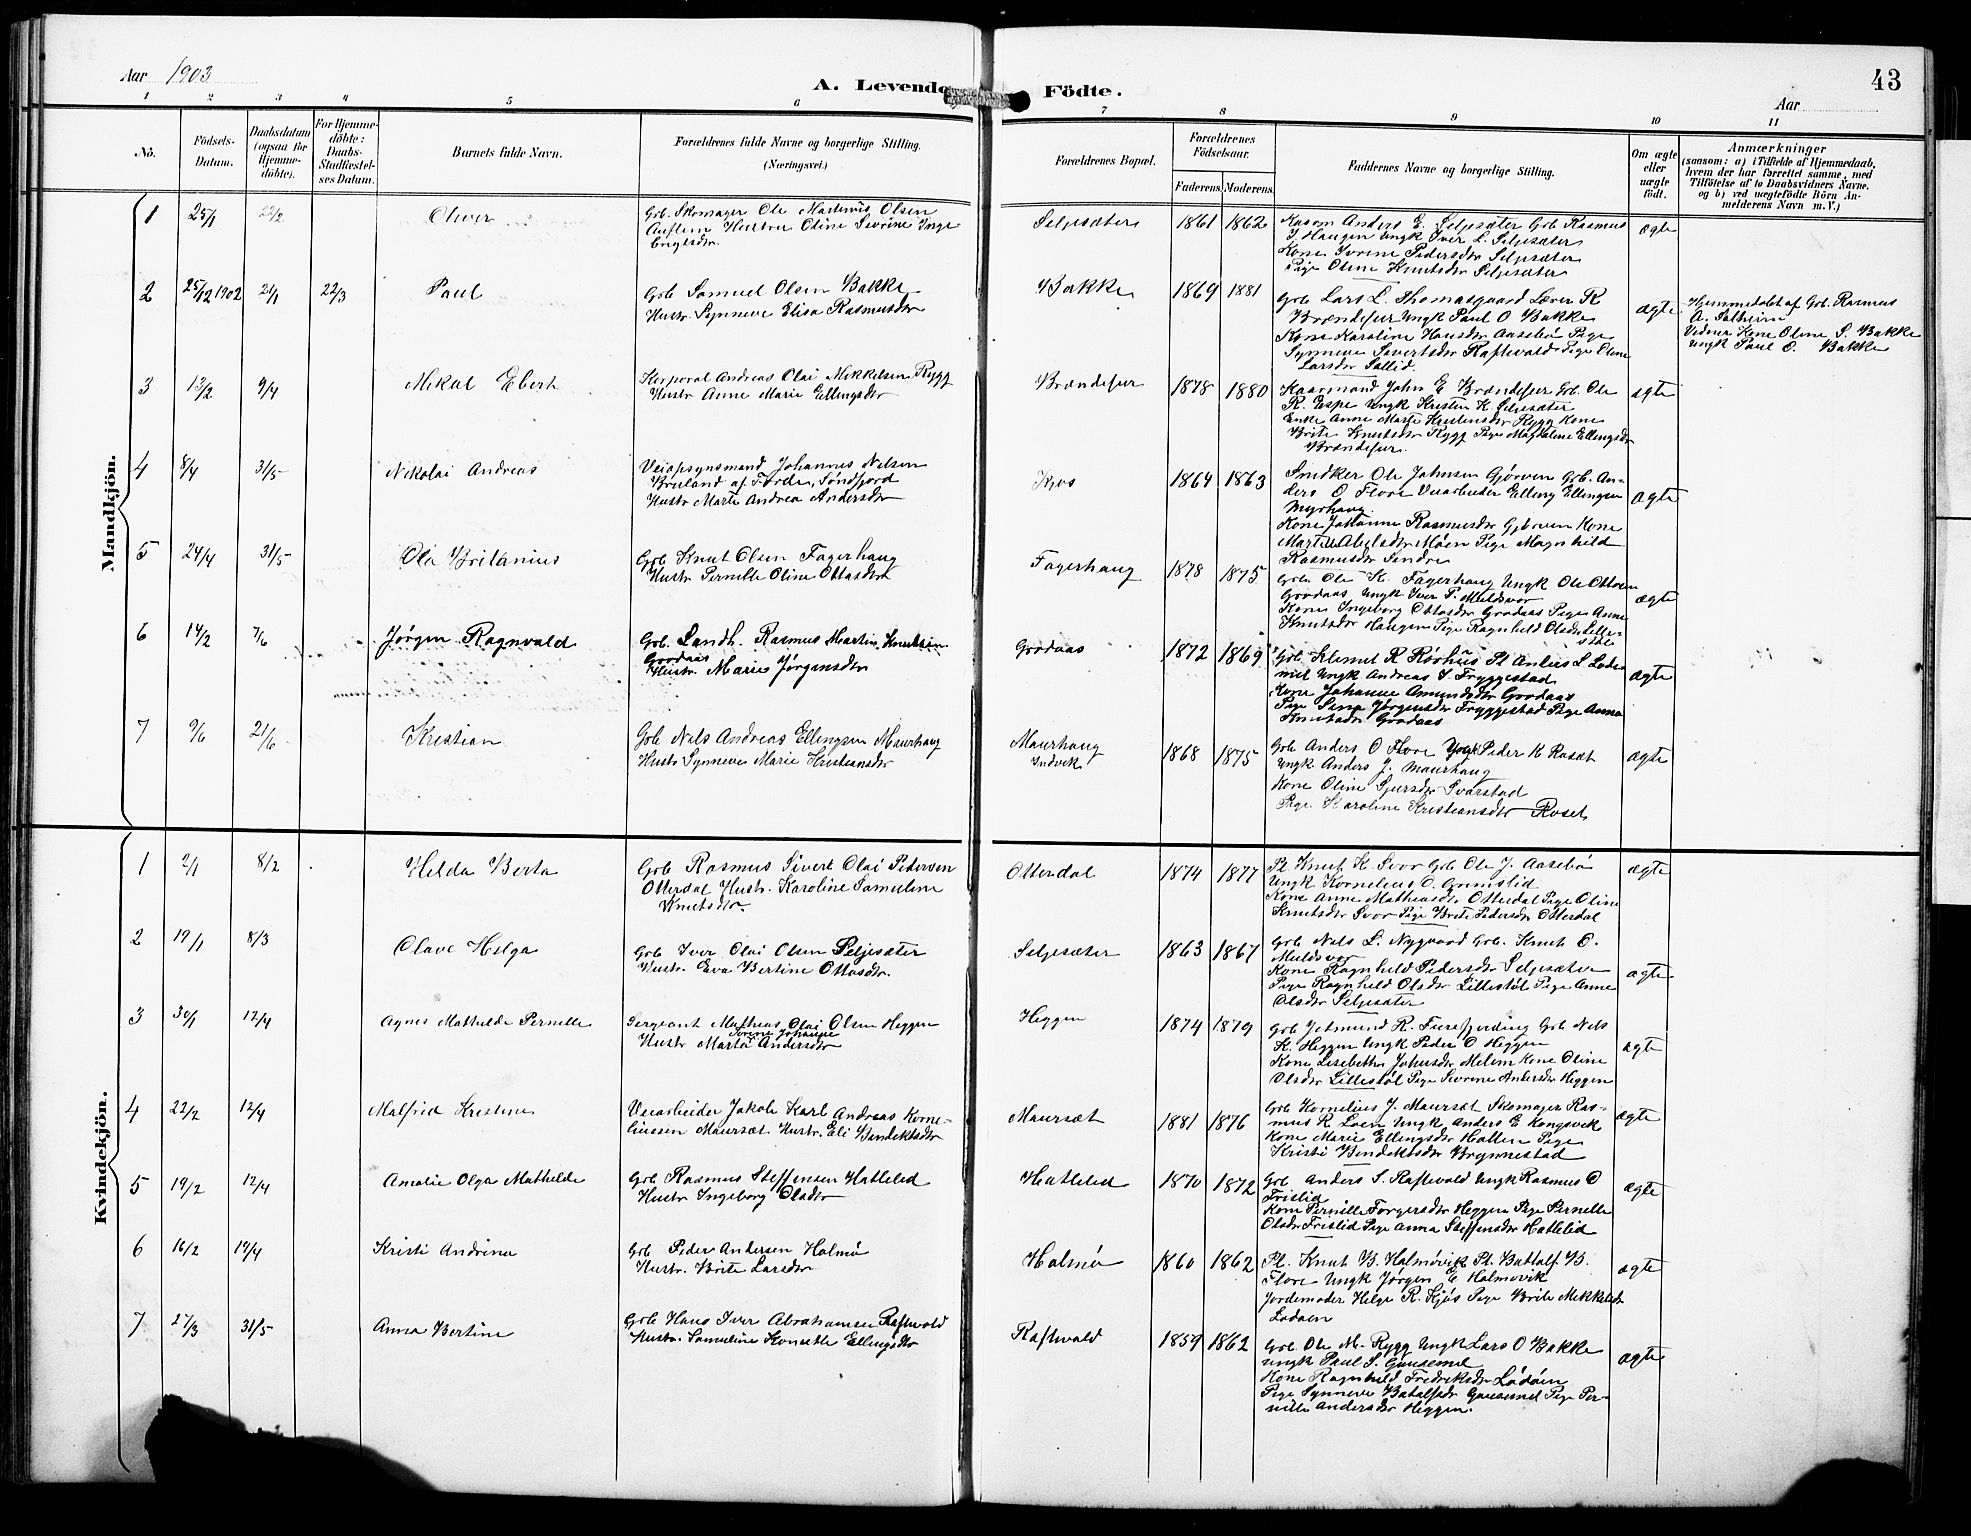 Aar 1903
A. Levende Födte.
43
Aar
1 2 3 4 5 6 7 8 9 10 11
No.
Födsels-Datum.
Daabsdatum (ogsaa for Hjemme-döbte).
For Hjemme-döbte: Daabs-Stadfæstel-ses Datum.
Barnets fulde Navn.
Forældrenes fulde Navne og borgerlige Stilling.
(Næringsvei.)
Forældrenes Bopæl.
Forældrenes Födselsaar.
Faderens. Moderens.
Faddernes Navne og borgerlige Stilling.
Om ægte eller uægte födt.
Anmærkninger
(saasom: a) i Tilfælde af Hjemmedaab,
hvem der har forrettet samme, med
Tilföielse af to Daabsvidners Navne.
og b) ved uægtefödte Börn An-
melderens Navn m. V.)
Mandkjön.
1 25/1 22/2 Oliver
Gbr. Skomager Ole Martinus Olsen
Hustru Oline Severine Inge
brigtsdtr
Seljesæter 1861 1862
Anders E. Seljesæter Gbr Rasmus
J. Haugen Ungk Iver L. Seljesæter
Kone Pedersdtr Seljesæter
Pige Oline Knutsdtr Seljesæter
ægte
2 25/12 1902 21/1 22/3 Paul
Gbr Samuel Olsen Bakke
Hustr. Synneve Elisa Rasmusdtr
Bakke 1869 1881
Gbr Lars L. Thomasgaard Lærer R.
Brændefur Ungk Paul O Bakke
Kone Karoline Hansdtr Aasebø Pige
Synneve Sivertsdtr Raftevold Pige Oline
Larsdtr
ægte
Hjemmedøbt af Gbr. Rasmus
A. Solheim
Vidner Kone Oline S. Bakke
Ungk Paul O. Bakke
3 13/2 9/4 Mikal Ebert
Korporal Andreas Olai Mikkelsen Rygg
Hustr Anne Marie Ellingsdtr
Brændefur 1878 1880
Kaarmand John E Brændefur Gbr. Ole
R. Espe Ungk Kristen K Seljesæter
Enke Anne Marte Kristensdtr Rygg Kone
Brite Knutsdtr Rygg Pige Magdalene Ellingsdtr
Brændefur.
ægte
4 8/4 31/5 Nikolai Andreas
Veiopsynsmand Johannes Nilsen
Bruland af Førde, Søndfjord
Hustr Marte Andrea Andersdtr
Kjøs 1864 1863
Snedker Ole Johnsen Gjørven Gbr. An-
ders O Flore Veiarbeider Elling Ellingsen
Myrhaug
Kone Johanne Rasmusdtr Gjørven Kone
Abelsdtr Moen Pige Magnhild
Rasmusdtr Sindre
5 24/4 31/5 Ole Britanius
Gbr Knut Olsen Fagerhaug
Hustr Pernille Oline Ottosdtr
Fagerhaug 1878 1875
Gbr. Ole K. Fagerhaug Ungk Ole Ottosen
Grodaas Ungk Iver P. Muldsvor
Kone Ingeborg Ottosdtr Grodaas Pige Anne
Knutsdtr Haugen Pige Ragnhild Olsdtr Lille-
støl
ægte
6 14/2 7/6 Jørgen Ragnvald
Gbr. Landh. Rasmus Martin Knutsen
Grodaas
Hustr. Marie Jørgensdtr
Grodaas 1872 1869
Gbr Klemet R Rørhus Pl Anders L Loden
Ungk Andreas J Tryggestad
Kone Johanne Amundsdtr Grodaas
Pige Sina Jørgensdtr Tryggestad Pige Anna
Knutsdtr Grodaas
ægte
7 9/6 21/6 Kristian
Gbr Nils Andreas Ellingsen Maurhaug
Hustr Synneve Marie Kristiansdtr
Maurhaug
Indvik 1868 1875
Gbr Anders O Flore Ungk Peder K Rosæt
Ungk Anders J. Maurhaug
Kone Oline Sjursdtr Svarstad
Pige Karoline Kristiansdtr Roset
ægte
Kvindekjön.
1 2/1 8/2 Hilda Berta
Gbr Rasmus Sivert Olai Pedersen
Otterdal Hustr. Karoline Samuline
Knutsdtr.
Otterdal 1874 1877
Pl Knut K. Svor Gbr Ole J. Aasebø
Ungk Kornelius O. Grimslid
Kone Anne Mathiasdtr Otterdal Pige Oline
Knutsdtr Svor Pige Brite Pedersdtr Otterdal
ægte
2 19/1 8/3 Olave Helga
Gbr Iver Olai Olsen Seljesæter
Hustr. Eva Bertine Ottosdtr.
Seljesæter 1863 1867
Gbr Nils L. Nygaard Gbr. Knut O.
Muldsvor
Kone Ragnhild Pedersdtr Seljesæter
Pige Ragnhild Olsdtr Lillestøl Pige Anne
Olsdtr Seljesæter
ægte
3 30/1 12/4 Agnes Mathilde Pernille
Sergeant Mathias Olai Olsen Heggen
Sivrine Johanne
Hustr Marta Andersdtr
Heggen 1874 1879
Gbr Jetmund R. Furæfjerding Gbr Nils
K. Heggen Ungk Peder O Heggen
Kone Lisebeth Johnsdtr Melem Kone Oline
Olsdtr Lillestøl Pige Sivrine Andersdtr Heggen
ægte
4 22/2 12/4 Malfrid Kristine
Veiarbeider Jakob Karl Andreas Korne-
liussen Maursæt Hustr. Eli Bendiktsdtr
Maursæt 1881 1876
Gbr Kornelius J. Maursæt Skomager Ras-
mus R Loen Ungk Anders E Kongsvik
Kone Marie Ellingsdtr Hollen Pige
Kristi Bendiktsdtr Brynnestad
ægte
5 19/2 12/4 Amalie Olga Mathilde
Gbr Rasmus Steffensen Hatlelid
Hustr Ingeborg Olsdtr
Hatlelid 1870 1872
Gbr Anders S. Raftevold Ungk Rasmus O
Frislid
Kone Pernille Torgersdtr Heggen Pige Pernille
Olsdtr Frislid Pige Anna Steffensdtr Hatlelid
ægte
6 16/2 19/4 Kristi Andrina
Gbr Peder Andersen Holmø
Hustr. Brite Larsdtr
Holmø 1860 1862
Pl. Knut B. Holmøvik Pl. Battalf B.
Flore Ungk Jørgen E Holmøvik
Jordemoder Helge R. Kjøs Pige Brite Mikkelsdtr
Lodøen
ægte
7 27/3 31/5 Anna Bertine
Gbr Hans Iver Abrahamsen Raftevold
Hustr. Sameline Konsette Ellingsdtr
Raftevold 1859 1862
Gbr. Ole M. Rygg Ungk Lars O Bakke
Ungk Paul S. Gausemel
Kone Ragnhild Fredriksdtr Lødøen
Pige Synneve Batalfsdtr Gausemel Pige Per-
nille Andersdtr Heggen.
ægte